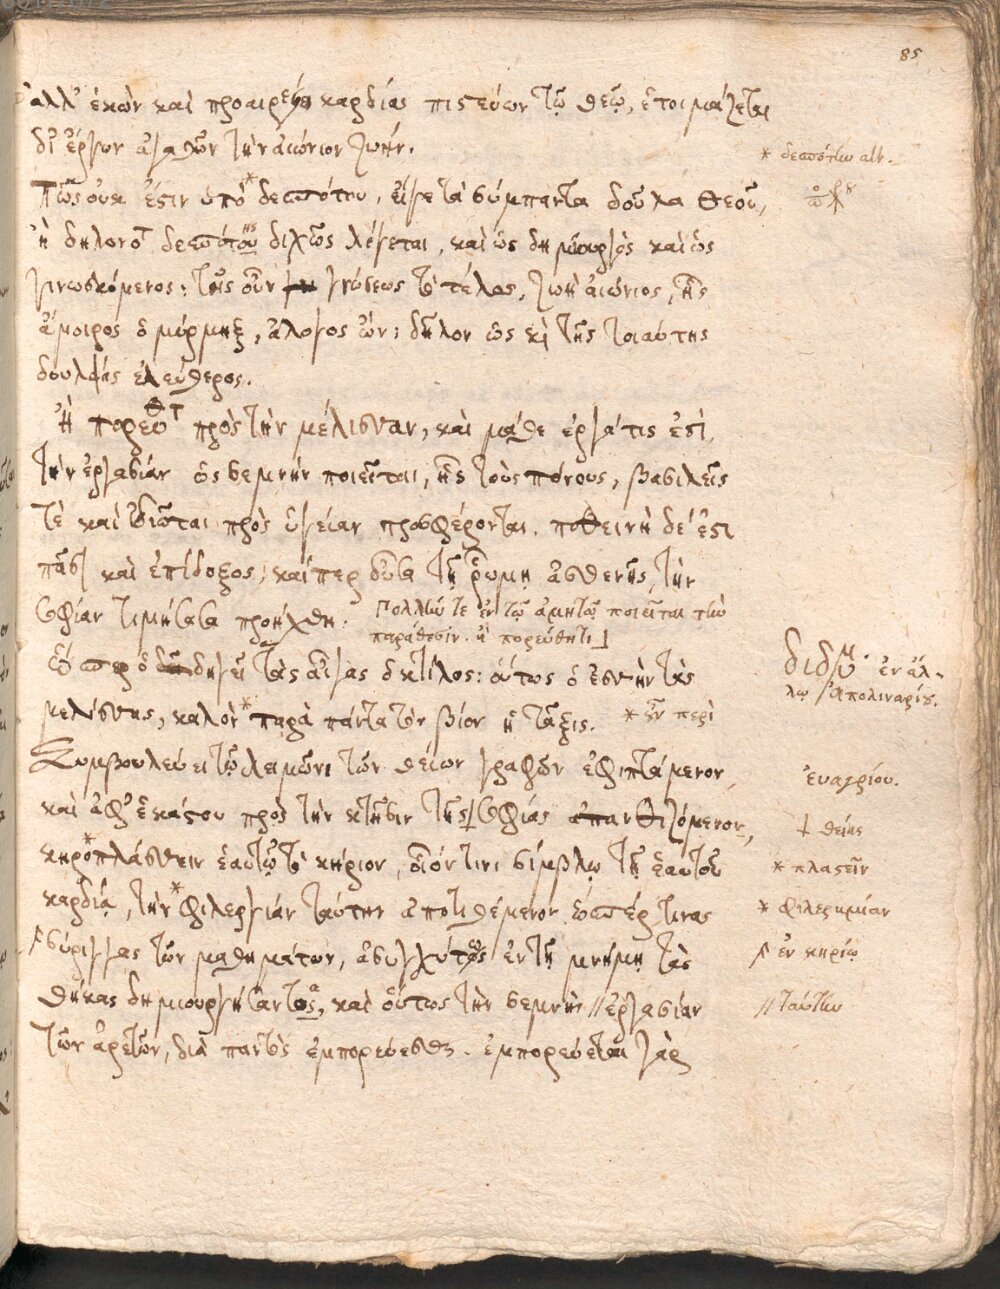 85
ἀλλ' ἑκὼν καὶ προαιρέσει καρδίας πιστεύων τῷ θεῷ, ἑτοιμάζεται
δι' ἔργων ἀγαθῶν τὴν αἰώνιον ζωήν.
* δεσπότην alt.
Πῶς οὐκ ἔστιν ὑπὸ * δεσπότου, εἴγε τὰ σύμπαντα δοῦλα θεοῦ,
ἢ δηλονότ δεσπότου ης διχῶς λέγεται, καὶ ὡς δημιουργὸς καὶ ὡς
γινωσκόμενος: τῆς οὖν γνώσεως τὸ τέλος, ζωὴ αἰώνιος, ἧς
ἄμοιρος ὁ μύρμηξ, ἄλογος ὤν: δῆλον ὡς κὶ τῆς τοιαύτης
δουλείας ἐλεύθερος.
Ἢ πορεύθητ πρὸς τὴν μέλισσαν, καὶ μάθε ἐργάτις ἐστὶ,
τὴν ἐργασίαν ὡς σεμνὴν ποιεῖται, ἧς τοὺς πόνους, βασιλεῖς
τὲ καὶ ἰδιῶται πρὸς ὑγείαν προσφέρονται. ποθεινὴ δέ ἐστι
πᾶσι καὶ ἐπίδοξος, καίπερ οὖσα τῇ ῥώμῃ ἀσθενὴς, τὴν
σοφίαν τιμήσασα προήχθη. πολλήν τε ἐν τῷ ἀμητῷ ποιεῖται τὴν
παράθεσιν. ἢ πορεύθητι
ὥσπερ ὁ δηγεῖ τὰς αἶγας ὁ κτίλος: οὕτως ὁ ἐσσὴν τὰς
διδύμ. ἐν ἄλ-
λῳ Ἀπολιναρίς.
μελίσσης, καλὸν * παρὰ πάντα τὸν βίον ἡ τάξις. * οὖν περὶ
Συμβουλεύει τῷ λειμῶνι τῶν θείων γραφῶν ἐφιπτάμενον,
εὐαγρίου.
καὶ ἀφ' ἑκάστου πρὸς τὴν κτῆσιν τῆς † σοφίας ἀπανθιζόμενον,
† θείης
κηρο*πλάσσειν ἑαυτῷ τὸ κήριον, οἷόν τινι σίμβλῳ τῇ ἑαυτοῦ
* πλασεῖν
καρδίᾳ, τὴν * φιλεργίαν ταύτην ἀποτιθέμενον, ὥσπέρ τινας
* φιλερημίαν
σύριγγας τῶν μαθημάτων, ἀσυγχύτως ἐν τῇ μνήμῃ τὰς
ἐν κηρίῳ
θήκας δημιουργήσαντος α, καὶ οὕτως τὴν σεμνὴν // ἐργασίαν
// ταύτην
τῶν ἀρετῶν, διὰ παντὸς ἐμπορεύεσθαι. ἐμπορεύεται γὰρ